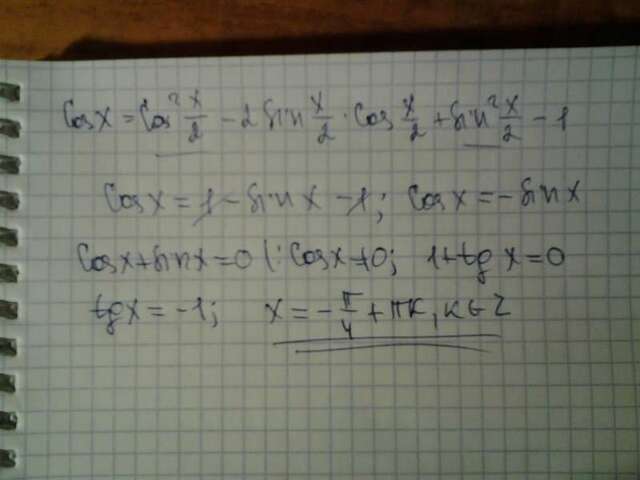 cos x = cos² x/2 - 2 sin x/2 · cos x/2 + sin² x/2 - 1
cos x = 1 - sin x - 1; cos x = - sin x
cos x + sin x = 0 | : cos x ≠ 0; 1 + tg x = 0
tg x = -1; x = - π/4 + πk, k ∈ Z